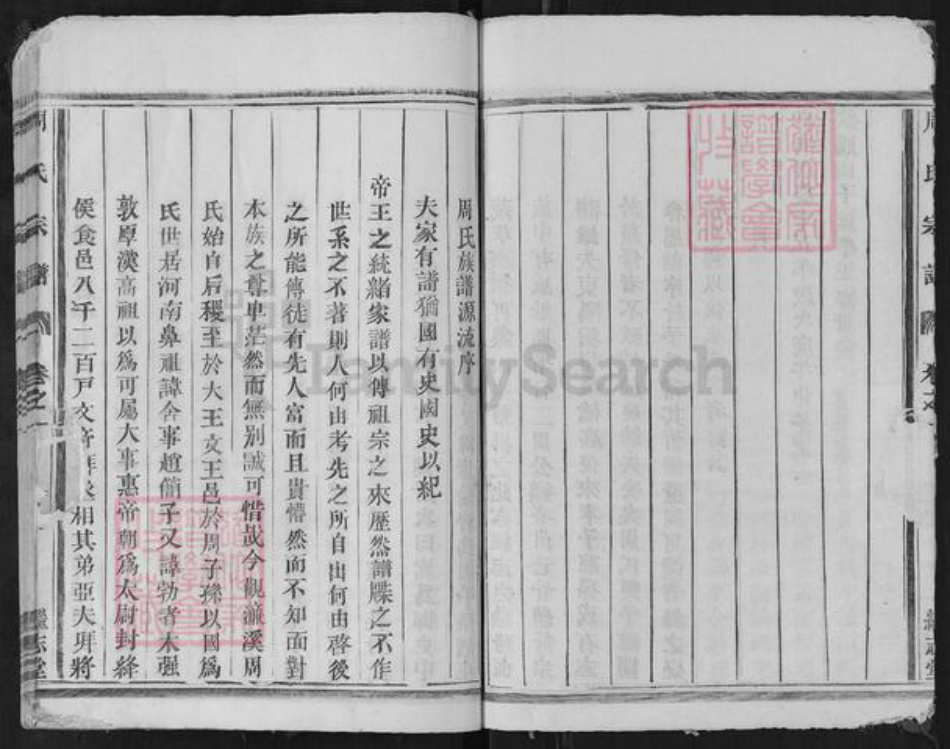 周氏族譜源流序
夫家有譜猶國有史國史以紀
帝王之統緒家譜以傳祖宗之來歷然譜牒之不作
世系之不著則人何由考先之所自出何由啓後
之所能傳徒有先人富而且貴懵然而不知面對
本族之尊卑茫然而無别誠可惜哉今觀濂溪周
氏始自后稷至於大王文王邑於周子孫以國爲
氏世居河南鼻祖諱舍事趙簡子又諱勃者木强
敦厚漢高祖以爲可屬大事惠帝朝爲太尉封絳
侯食邑八千二百戸文帝拜丞相其弟亞夫拜將
周氏宗譜
卷之一
繼志堂
FamilySearch